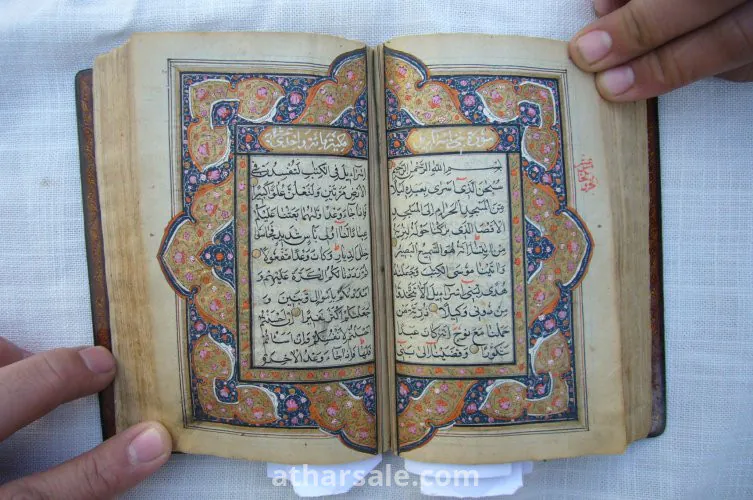 سورة بنی اسرائیل
بِسْمِ اللهِ الرَّحْمٰنِ الرَّحِيْمِ
سُبْحٰنَ الَّذِىْ اَسْرٰى بِعَبْدِهٖ لَيْلًا
مِنَ الْمَسْجِدِ الْحَرَامِ اِلَى الْمَسْجِدِ
الْاَقْصَا الَّذِىْ بٰرَكْنَا حَوْلَهٗ لِنُرِيَهٗ
مِنْ اٰيٰتِنَا اِنَّهٗ هُوَ السَّمِيْعُ الْبَصِيْرُ
وَاٰتَيْنَا مُوْسَى الْكِتٰبَ وَجَعَلْنٰهُ
هُدًى لِبَنِىْ اِسْرَائِيْلَ اَلَّا تَتَّخِذُوْا
مِنْ دُوْنِىْ وَكِيْلًا ذُرِّيَّةَ مَنْ
حَمَلْنَا مَعَ نُوْحٍ اِنَّهٗ كَانَ عَبْدًا
شَكُوْرًا وَقَضَيْنَا اِلٰى بَنِىْ
اِسْرَائِيْلَ فِى الْكِتٰبِ لَتُفْسِدُنَّ فِى
الْاَرْضِ مَرَّتَيْنِ وَلَتَعْلُنَّ عُلُوًّا كَبِيْرًا
فَاِذَا جَاءَ وَعْدُ اُوْلٰىهُمَا بَعَثْنَا عَلَيْكُمْ
عِبَادًا لَنَا اُولِىْ بَاْسٍ شَدِيْدٍ فَجَاسُوْا
خِلٰلَ الدِّيَارِ وَكَانَ وَعْدًا مَفْعُوْلًا
ثُمَّ رَدَدْنَا لَكُمُ الْكَرَّةَ عَلَيْهِمْ وَ
اَمْدَدْنٰكُمْ بِاَمْوَالٍ وَبَنِيْنَ وَ
جَعَلْنٰكُمْ اَكْثَرَ نَفِيْرًا اِنْ اَحْسَنْتُمْ
اَحْسَنْتُمْ لِاَنْفُسِكُمْ وَاِنْ اَسَاْتُمْ
فَلَهَا فَاِذَا جَاءَ وَعْدُ الْاٰخِرَةِ
atharsale.com